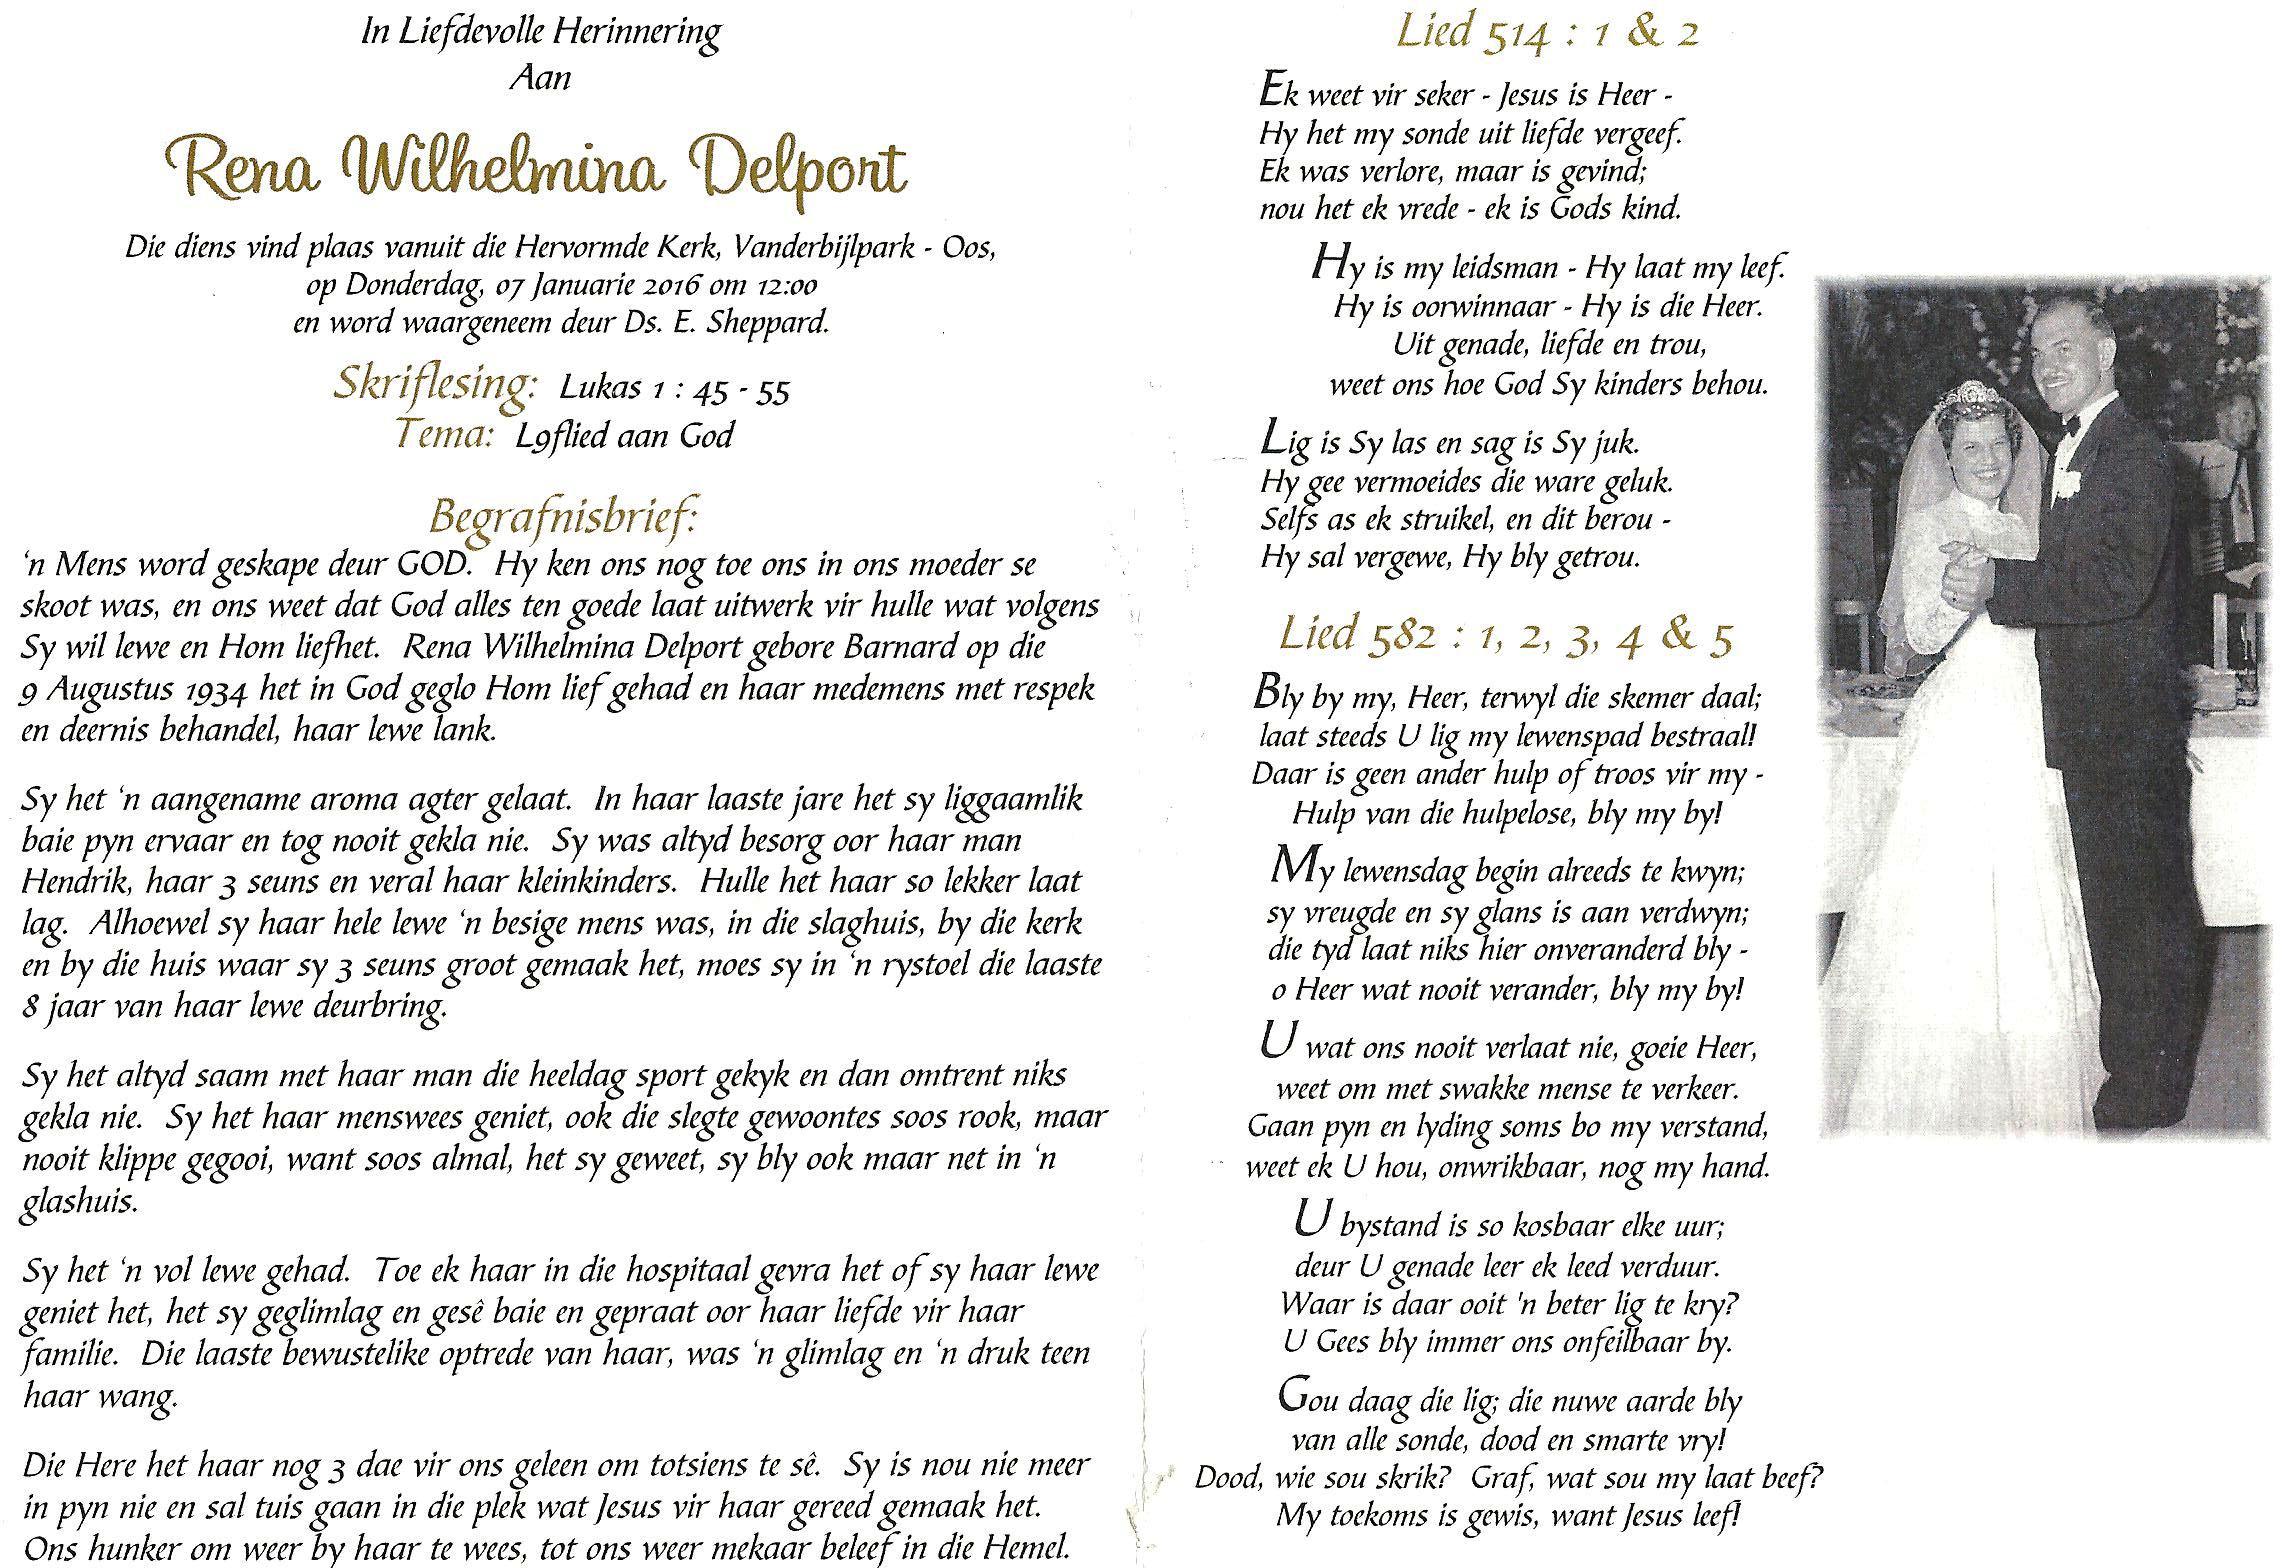 In Liefdevolle Herinnering
Aan
Rena Wilhelmina Delport
Die diens vind plaas vanuit die Hervormde Kerk, Vanderbijlpark - Oos,
op Donderdag, 07 Januarie 2016 om 12:00
en word waargeneem deur Ds. E. Sheppard.
Skriflesing: Lukas 1 : 45 - 55
Tema: L9flied aan God
Begrafnisbrief:
‘n Mens word geskape deur GOD. Hy ken ons nog toe ons in ons moeder se
skoot was, en ons weet dat God alles ten goede laat uitwerk vir hulle wat volgens
Sy wil lewe en Hom liefhet. Rena Wilhelmina Delport gebore Barnard op die
9 Augustus 1934 het in God geglo Hom lief gehad en haar medemens met respek
en deernis behandel, haar lewe lank.
Sy het ‘n aangename aroma agter gelaat. In haar laaste jare het sy liggaamlik
baie pyn ervaar en tog nooit gekla nie. Sy was altyd besorg oor haar man
Hendrik, haar 3 seuns en veral haar kleinkinders. Hulle het haar so lekker laat
lag. Alhoewel sy haar hele lewe ‘n besige mens was, in die slaghuis, by die kerk
en by die huis waar sy 3 seuns groot gemaak het, moes sy in ‘n rystoel die laaste
8 jaar van haar lewe deurbring.
Sy het altyd saam met haar man die heeldag sport gekyk en dan omtrent niks
gekla nie. Sy het haar menswees geniet, ook die slegte gewoontes soos rook, maar
nooit klippe gegooi, want soos almal, het sy geweet, sy bly ook maar net in ‘n
glashuis.
Sy het ‘n vol lewe gehad. Toe ek haar in die hospitaal gevra het of sy haar lewe
geniet het, het sy geglimlag en gesê baie en gepraat oor haar liefde vir haar
familie. Die laaste bewustelike optrede van haar, was ‘n glimlag en ‘n druk teen
haar wang.
Die Here het haar nog 3 dae vir ons geleen om totsiens te sê. Sy is nou nie meer
in pyn nie en sal tuis gaan in die plek wat Jesus vir haar gereed gemaak het.
Ons hunker om weer by haar te wees, tot ons weer mekaar beleef in die Hemel.
Lied 514 : 1 & 2
Ek weet vir seker - Jesus is Heer -
Hy het my sonde uit liefde vergeef.
Ek was verlore, maar is gevind;
nou het ek vrede - ek is Gods kind.
Hy is my leidsman - Hy laat my leef.
Hy is oorwinnaar - Hy is die Heer.
Uit genade, liefde en trou,
weet ons hoe God Sy kinders behou.
Lig is Sy las en sag is Sy juk.
Hy gee vermoeides die ware geluk.
Selfs as ek struikel, en dit berou -
Hy sal vergewe, Hy bly getrou.
Lied 582 : 1, 2, 3, 4 & 5
Bly by my, Heer, terwyl die skemer daal;
laat steeds U lig my lewenspad bestraal!
Daar is geen ander hulp of troos vir my -
Hulp van die hulpelose, bly my by!
My lewensdag begin alreeds te kwyn;
sy vreugde en sy glans is aan verdwyn;
die tyd laat niks hier onveranderd bly -
o Heer wat nooit verander, bly my by!
U wat ons nooit verlaat nie, goeie Heer,
weet om met swakke mense te verkeer.
Gaan pyn en lyding soms bo my verstand,
weet ek U hou, onwrikbaar, nog my hand.
U bystand is so kosbaar elke uur;
deur U genade leer ek leed verduur.
Waar is daar ooit 'n beter lig te kry?
U Gees bly immer ons onfeilbaar by.
Gou daag die lig; die nuwe aarde bly
van alle sonde, dood en smarte vry!
Dood, wie sou skrik? Graf, wat sou my laat beef?
My toekoms is gewis, want Jesus leef!